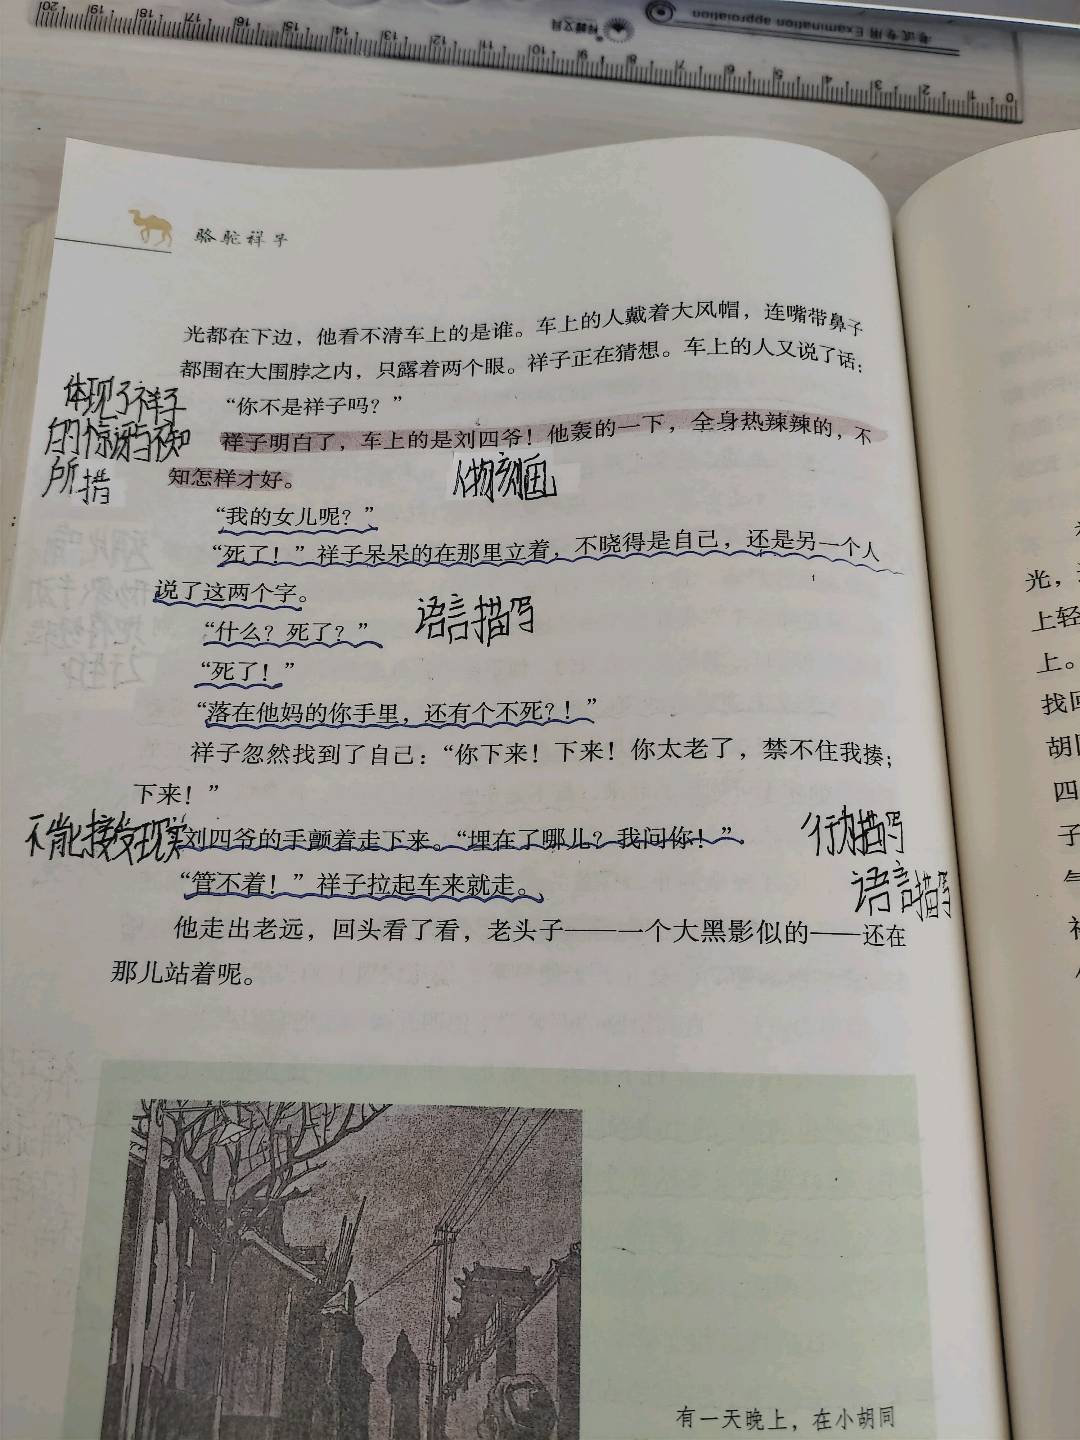 考试专用 Examination approiation
20 19 18 17 16 15 14 13 12 11 10 9 8 7 6 5 4 3 2 1 0
骆驼祥子
光都在下边，他看不清车上的是谁。车上的人戴着大风帽，连嘴带鼻子
都围在大围脖之内，只露着两个眼。祥子正在猜想。车上的人又说了话：
“你不是祥子吗？”
体现了祥子
的惊讶与不知
所措
祥子明白了，车上的是刘四爷！他轰的一下，全身热辣辣的，不
知怎样才好。
人物刻画
“我的女儿呢？”
“死了！”祥子呆呆的在那里立着，不晓得是自己，还是另一个人
说了这两个字。
“什么？死了？”
语言描写
“死了！”
“落在他妈的你手里，还有个不死？！”
祥子忽然找到了自己：“你下来！下来！你太老了，禁不住我揍；
下来！”
不能接受现实
刘四爷的手颤着走下来。“埋在了哪儿？我问你！”
行动描写
语言描写
“管不着！”祥子拉起车来就走。
他走出老远，回头看了看，老头子——一个大黑影似的——还在
那儿站着呢。
有一天晚上，在小胡同
光，
上轻
上。
找回
四
子